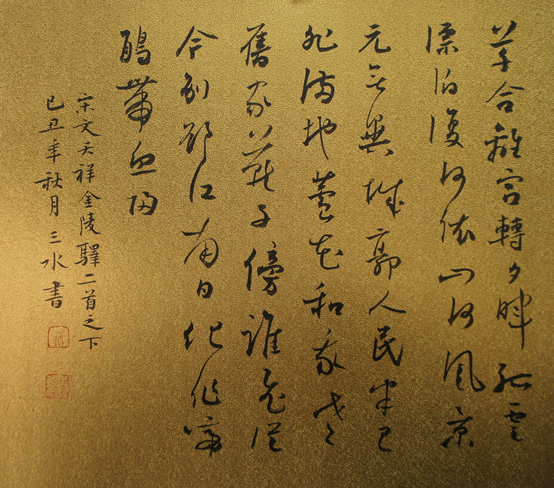 草合離宮轉夕暉孤雲
漂泊復何依山河風景
元無異城郭人民半已
非滿地蘆花和我老
舊家燕子傍誰飛從
今別却江南日化作啼
鵑帶血歸
宋文天祥金陵驛二首之下
己丑年秋月三水書